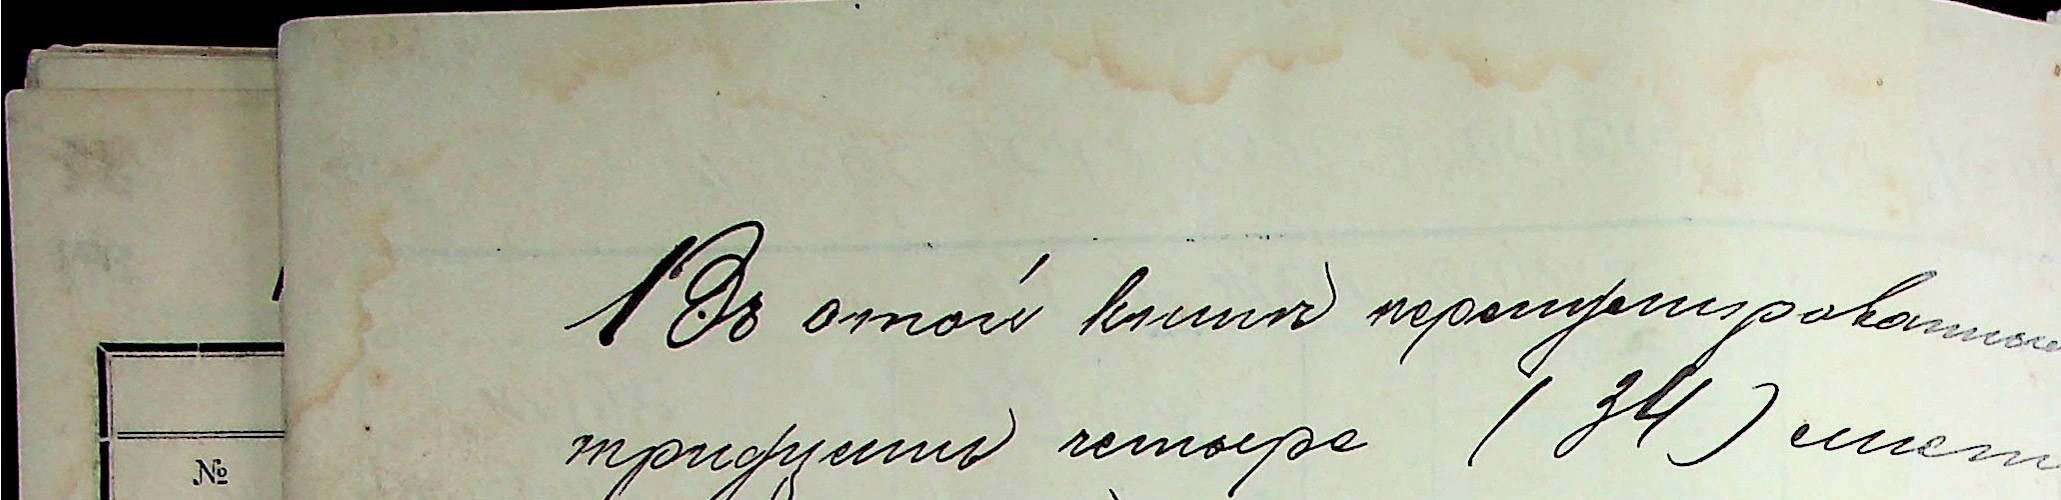 Въ этой книгѣ перенумерованных
тридцать четыре (34) лист
№